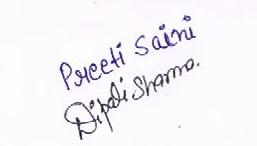 Preeti Saini
Dipali Sharma.